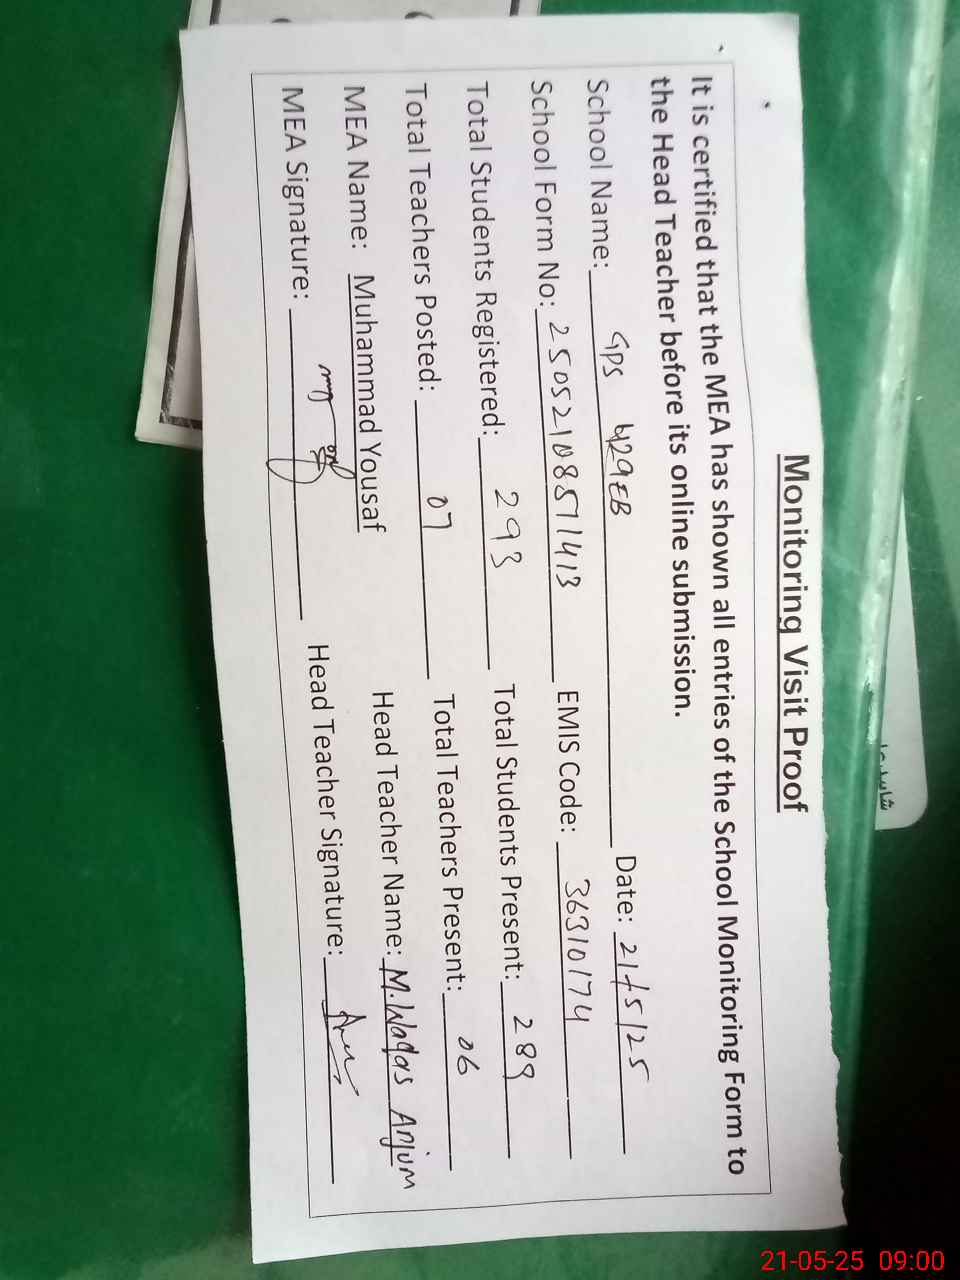 Monitoring Visit Proof
It is certified that the MEA has shown all entries of the School Monitoring Form to
the Head Teacher before its online submission.
School Name: GPS 429EB Date: 21/5/25
School Form No: 25052108511413 EMIS Code: 36310174
Total Students Registered: 293 Total Students Present: 289
Total Teachers Posted: 07 Total Teachers Present: 06
MEA Name: Muhammad Yousaf Head Teacher Name: M.Waqas Anjum
MEA Signature: Head Teacher Signature:
21-05-25 09:00